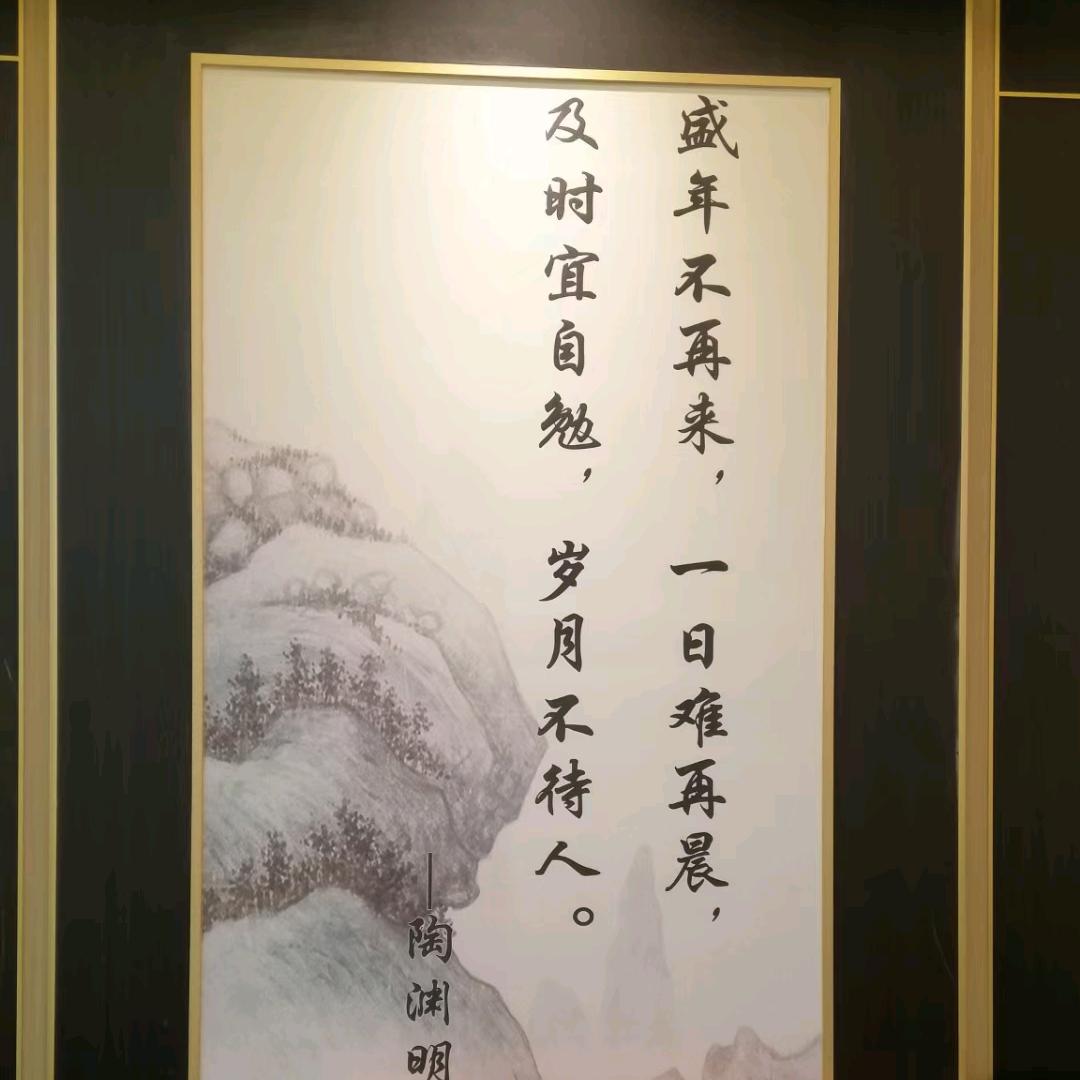 盛年不再来，一日难再晨，
及时宜自勉，岁月不待人。
—陶渊明